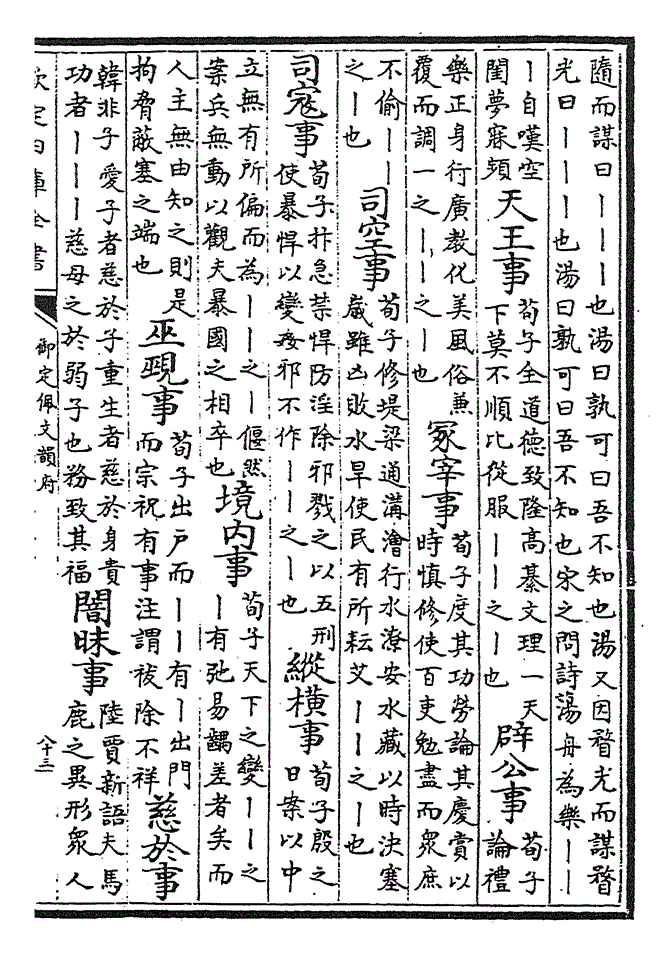 隨而謀曰丨丨丨也湯曰孰可曰吾不知也湯又因瞀光而謀瞀
光曰丨丨丨也湯曰孰可曰吾不知也宋之問詩蕩舟為樂丨丨
丨自嘆空
閨夢寐頻
天王事
荀子全道德致隆高綦文理一天
下莫不順比從服丨丨之丨也
辟公事
荀子
論禮
樂正身行廣教化美風俗兼
覆而調一之丨丨之丨也
冢宰事
荀子度其功勞論其慶賞以
時慎修使百吏勉盡而衆庶
不偷丨丨
之丨也
司空事
荀子修堤梁通溝澮行水潦安水藏以時決塞
歲雖凶敗水旱使民有所耘艾丨丨之丨也
司寇事
荀子抃急禁悍防淫除邪戮之以五刑
使暴悍以變姦邪不作丨丨之丨也
縱横事
荀子殷之
日案以中
立無有所偏而為丨丨之丨偃然
案兵無動以觀夫暴國之相卒也
境内事
荀子天下之變丨丨之
丨有弛易齵差者矣而
人主無由知之則是
拘脅蔽塞之端也
巫覡事
荀子出户而丨丨有丨出門
而宗祝有事注謂祓除不祥
慈於事
韓非子愛子者慈於子重生者慈於身貴
功者丨丨丨慈母之於弱子也務致其福
闇昧事
陸賈新語夫馬
鹿之異形衆人
欽定四庫全書
御定佩文韻府
八十三